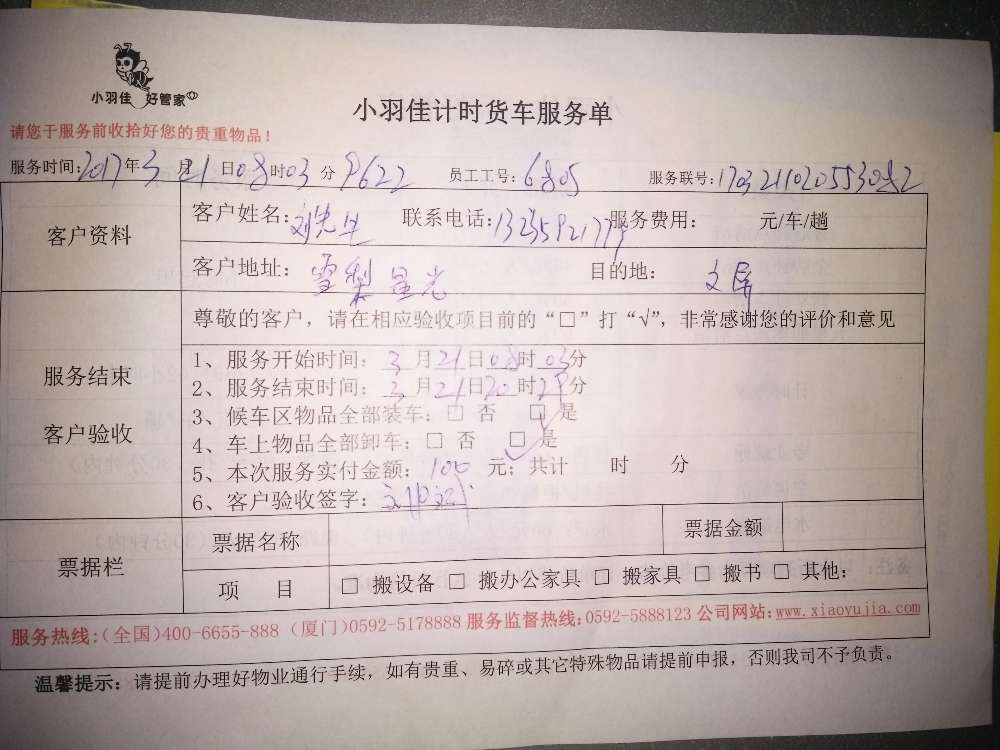 小羽佳 好管家
小羽佳计时货车服务单
请您于服务前收拾好您的贵重物品！
服务时间:2017年3月21日08时03分 9622 员工工号:6805 服务联号:
客户资料
客户姓名:刘先生 联系电话: 服务费用： 元/车/趟
客户地址：雪梨星光 目的地：文屏
服务结束
客户验收
尊敬的客户，请在相应验收项目前的“□”打“√”，非常感谢您的评价和意见
1、服务开始时间：3月21日08时03分
2、服务结束时间：3月21日20时29分
3、候车区物品全部装车：□ 否 □ 是
4、车上物品全部卸车：□ 否 □ 是
5、本次服务实付金额：100元；共计 时 分
6、客户验收签字：
票据栏
票据名称 票据金额
项 目 □ 搬设备 □ 搬办公家具 □ 搬家具 □ 搬书 □ 其他：
服务热线:(全国)400-6655-888 (厦门)0592-5178888 服务监督热线:0592-5888123 公司网站:www.xiaoyujia.com
温馨提示：请提前办理好物业通行手续，如有贵重、易碎或其它特殊物品请提前申报，否则我司不予负责。